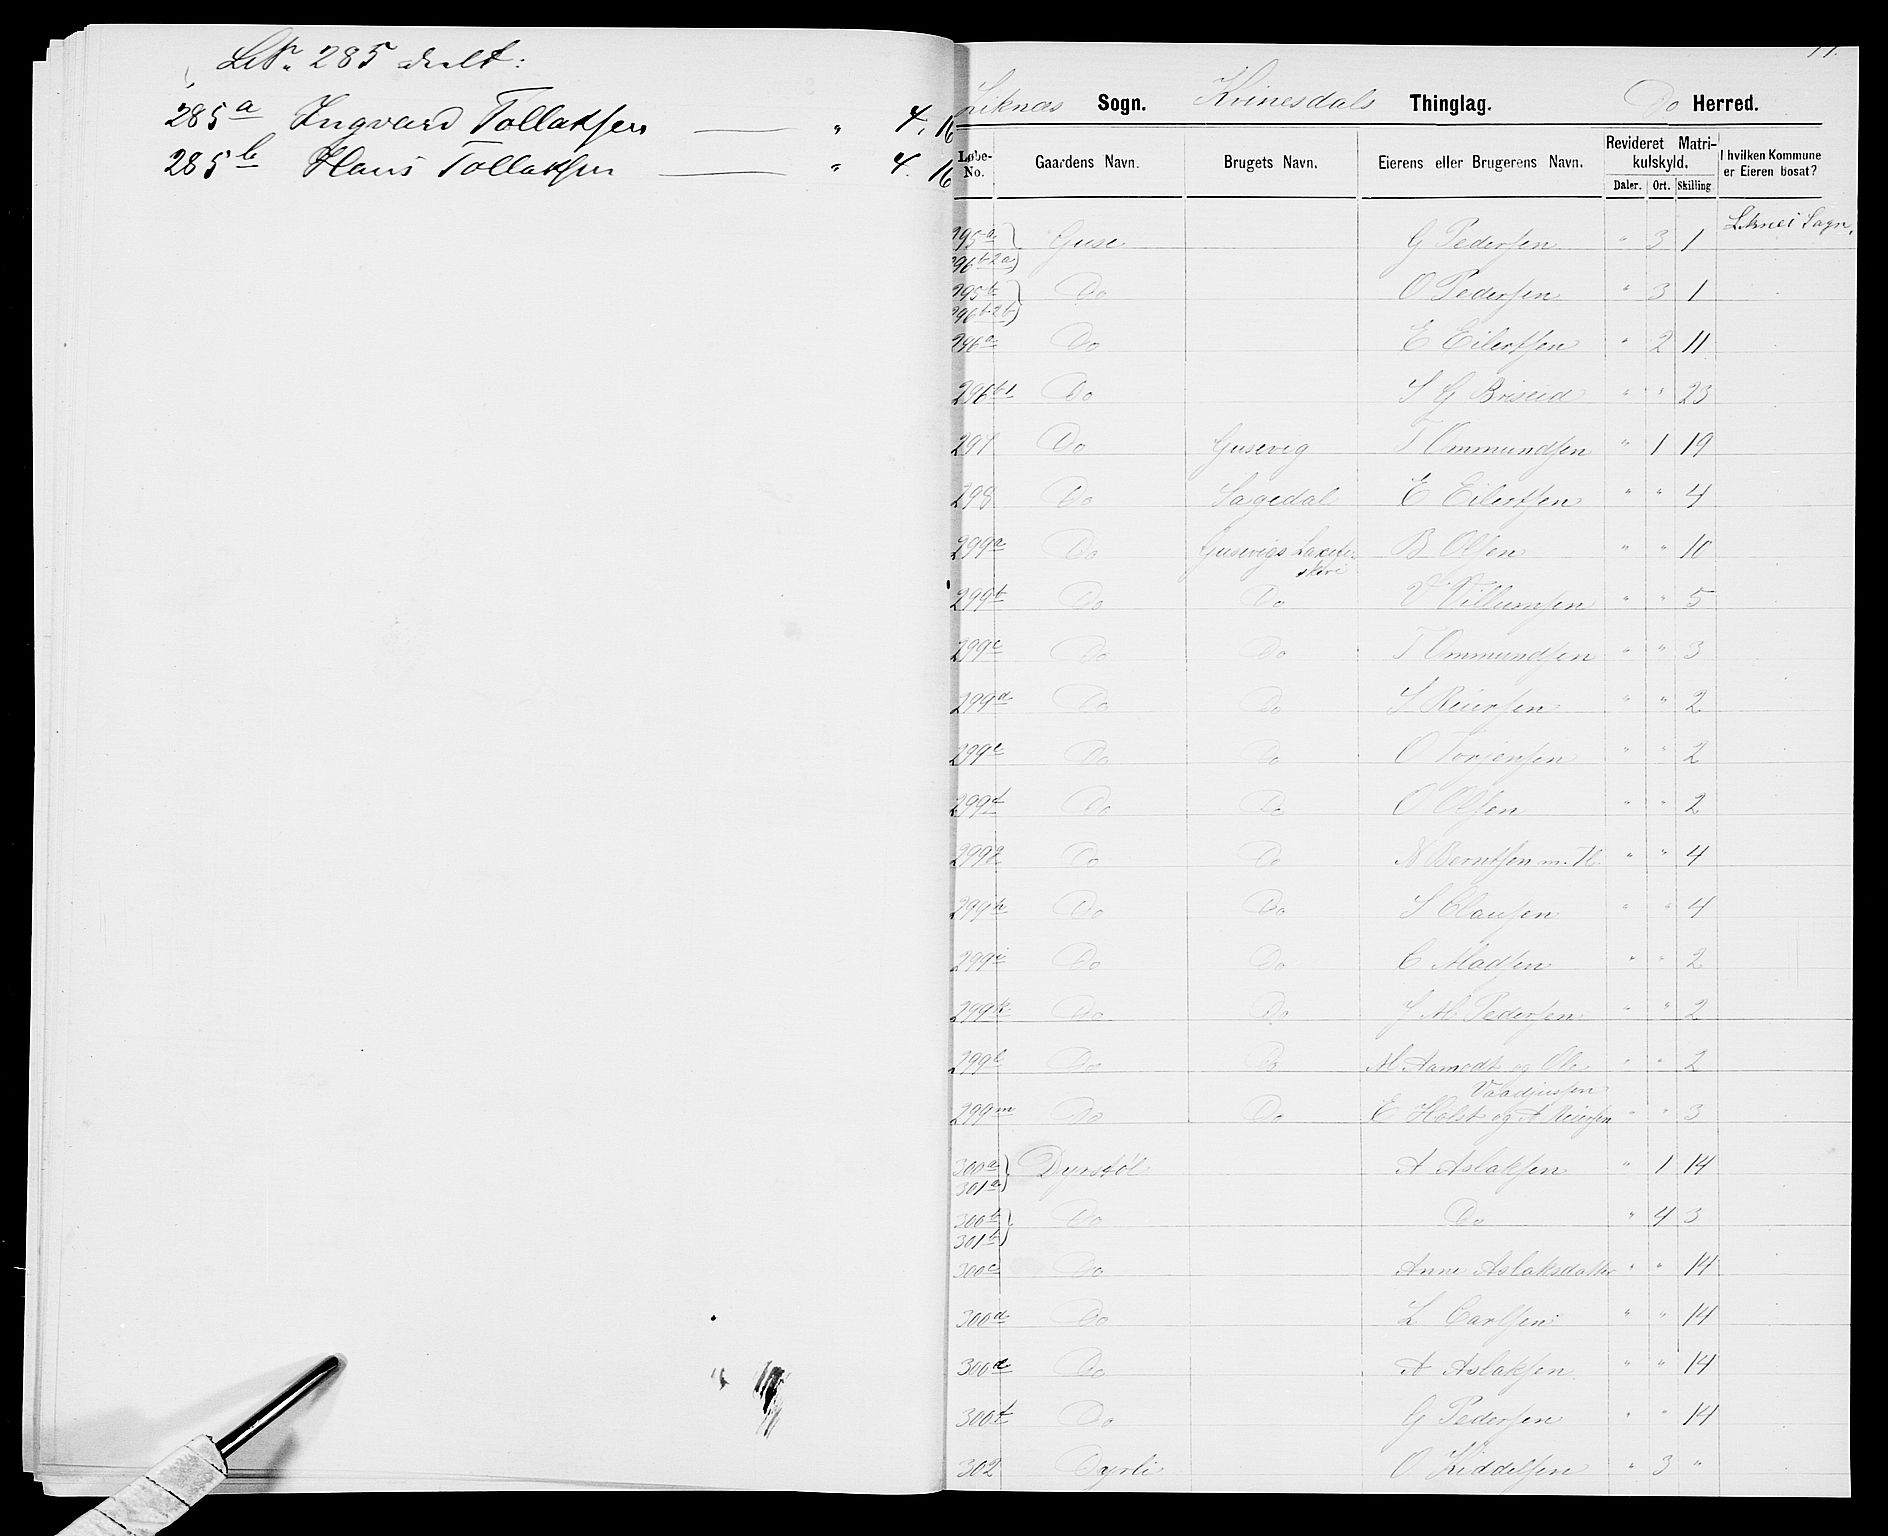 LNr. 285 deelt:
285a Ingvard Tollaksen — " 4. 16
285b Hans Tollaksen — " 4. 16
Liknæs Sogn. Kvinesdals Thinglag. Do Herred.
Løbe-No. Gaardens Navn. Brugets Navn. Eierens eller Brugerens Navn. Revideret Matrikulskyld. Daler. Ort. Skilling I hvilken Kommune er Eieren bosat?
295a 296b2a Guse G Pedersen " 3 1 Liknæs Sogn.
295b 296b2b Do O Pedersen " 3 1
296a Do E Eilertsen " 2 11
296b1 Do S G Briseid " " 23
297 Do Gusevig T Ommundsen " 1 19
298 Do Sagedal E Eilertsen " " 4
299a Do Gusevigs Laxefiskeri B Olsen " " 10
299b Do Do V Villumsen " " 5
299c Do Do T Ommundsen " " 3
299d Do Do S Reiersen " " 2
299e Do Do O Torjensen " " 2
299f Do Do O Olsen " " 2
299g Do Do N Berntsen m. Fl. " " 4
299h Do Do S Clausen " " 4
299i Do Do C Madsen " " 2
299k Do Do J M Pedersen " " 2
299l Do Do M Aamodt og Ole Vaadjussen " " 2
299m Do Do E Holst og A Reiersen " " 3
300a 301a Dyrstøl A Aslaksen " 1 14
300b 301b Do Do " 4 3
300c Do Anne Aslaksdatter " " 14
300d Do L Carlsen " " 14
300e Do A Aslaksen " " 14
300f Do G Pedersen " " 14
302 Dyrli O Kiddelsen " 3 "